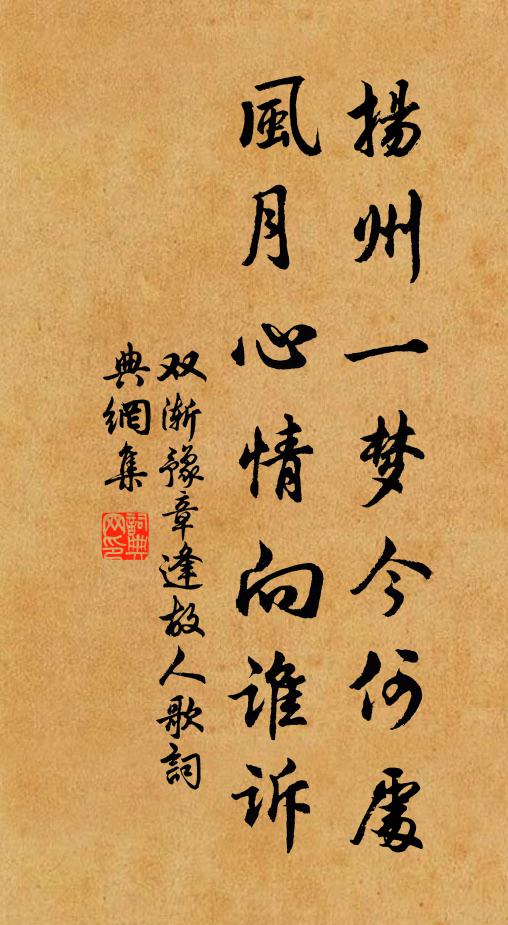 揚州一梦今何處
風月心情向谁诉
双渐豫章逢故人歌詞
典網集
詞典网印